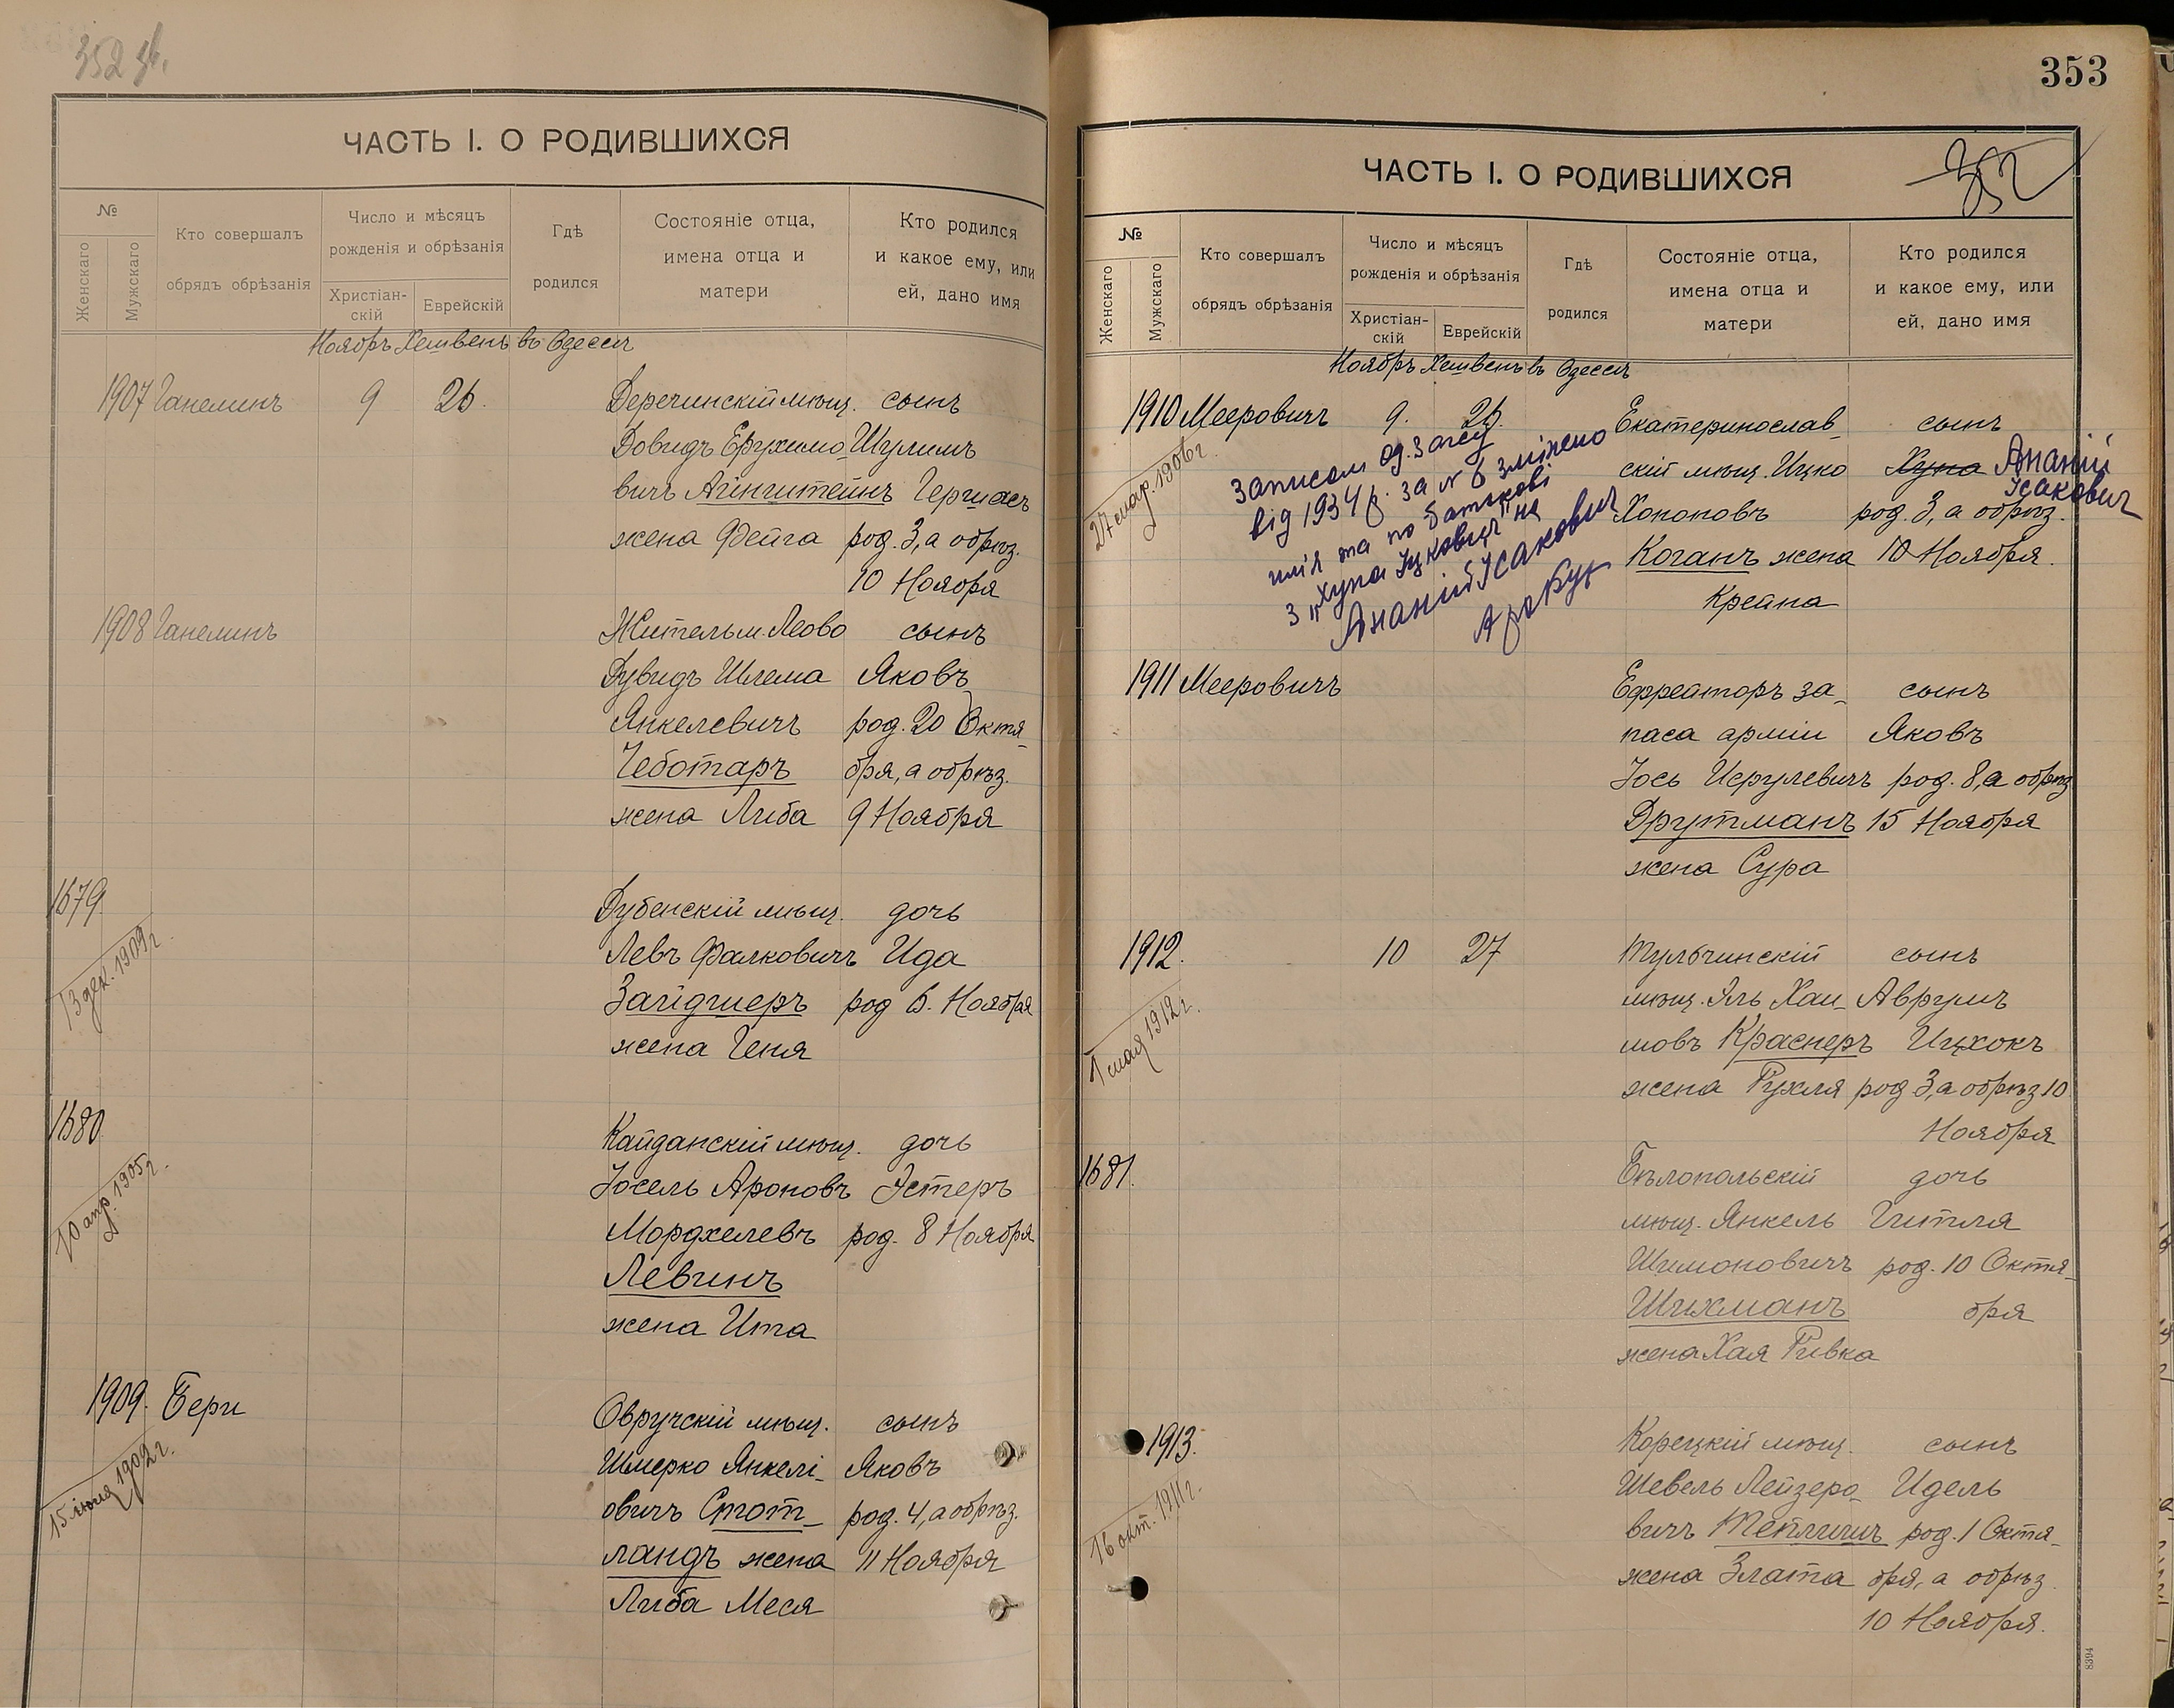 352 зв.
ЧАСТЬ I. О РОДИВШИХСЯ
№
Женскаго
Мужскаго
Кто совершалъ
обрядъ обрѣзанія
Число и мѣсяцъ
рожденія и обрѣзанія
Христіан-
скій
Еврейскій
Гдѣ
родился
Состояніе отца,
имена отца и
матери
Кто родился
и какое ему, или
ей, дано имя
Ноябрь Хешвенъ въ Одессѣ
1907 Ганелинъ 9 26. Деречинскій мѣщ. сынъ
Довидъ Ерухимо- Шулимъ
вичъ Айнгштейнъ Гершасъ
жена Фейга род. 3, а обрѣз.
10 Ноября
1908 Ганелинъ Житель м. Леово сынъ
Дувидъ Шлема Яковъ
Янкелевичъ род. 20 Октя-
Чеботаръ бря, а обрѣз.
жена Либа 9 Ноября
1679 Дубенскій мѣщ. дочь
13 дек. 1909 г.
Левъ Фалковичъ Ида
Зайдшеръ род 6. Ноября
жена Геня
1680 Кайданскій мѣщ. дочь
10 апр. 1905 г.
Іосель Ароновъ Эстеръ
Мордхелевъ род. 8 Ноября
Левинъ
жена Ита
1909. Бери Овручскій мѣщ. сынъ
15 іюня 1909 г.
Шмерко Янкелі- Яковъ
овичъ Стот- род. 4, а обрѣз.
ландъ жена 11 Ноября
Либа Меся
353
352
ЧАСТЬ I. О РОДИВШИХСЯ
№
Женскаго
Мужскаго
Кто совершалъ
обрядъ обрѣзанія
Число и мѣсяцъ
рожденія и обрѣзанія
Христіан-
скій
Еврейскій
Гдѣ
родился
Состояніе отца,
имена отца и
матери
Кто родился
и какое ему, или
ей, дано имя
Ноябрь Хешвенъ въ Одессѣ
1910 Мееровичъ 9. 26. Екатеринослав- сынъ
27 мар. 1906 г.
скій мѣщ. Ицко Хуна Ананій
Ісакович
Хононовъ род. 3, а обрѣз.
Коганъ жена 10 Ноября.
Крейна
Записом Од. Загсу
від 1934 р. за № 6 змінено
імʼя та по батькові
з „Хуна Іцкович" на
Ананій Ісакович
1911 Мееровичъ Ефрейторъ за- сынъ
паса арміи Яковъ
Іось Исрулевичъ род. 8, а обрѣз
Друтманъ 15 Ноября
жена Сура
1912. 10 27 Тульчинскій сынъ
1 мая 1912 г.
мѣщ. Эль Хаи- Аврумъ
мовъ Краснеръ Ицхокъ
жена Рухля род 3, а обрѣз 10
Ноября
1681. Бѣлопольскій дочь
мѣщ. Янкель Гитля
Шимоновичъ род. 10 Октя-
Шихманъ бря
жена Хая Ривка
1913. Корецкій мѣщ. сынъ
16 окт. 1911 г.
Шевель Лейзеро- Идель
вичъ Теплицъ род. 1 Октя-
жена Злата бря, а обрѣз.
10 Ноября.
8394